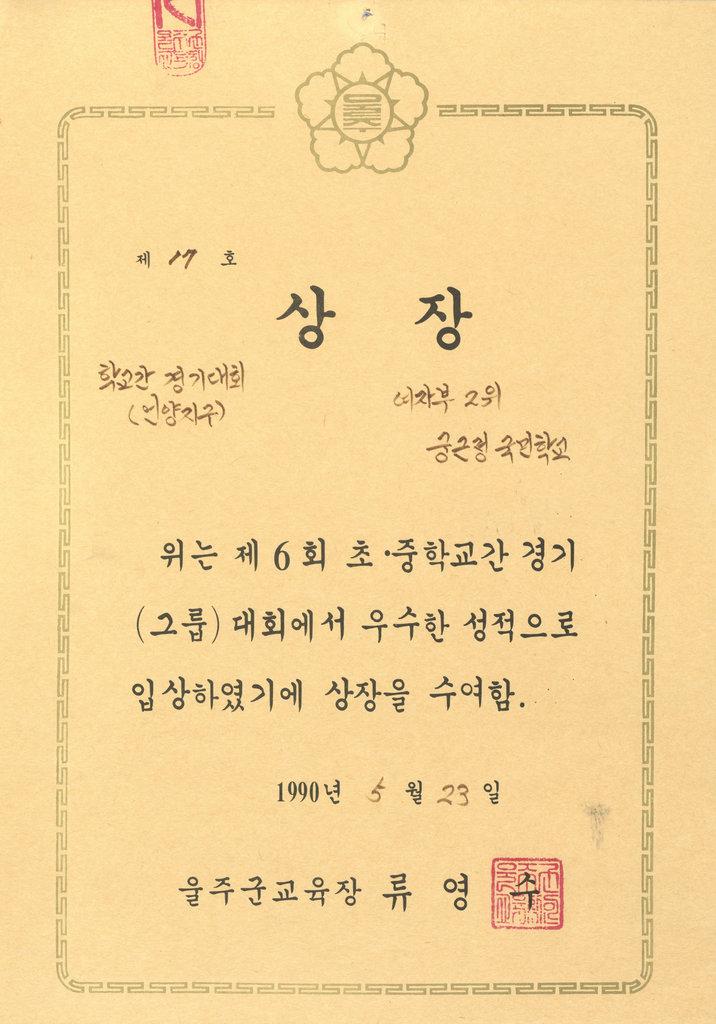 제 17 호
상 장
학교간 경기대회
(언양지구)
여자부 2위
궁근정 국민학교
위는 제 6 회 초·중학교간 경기
(그룹) 대회에서 우수한 성적으로
입상하였기에 상장을 수여함.
1990년 5 월 23 일
울주군교육장 류 영 수